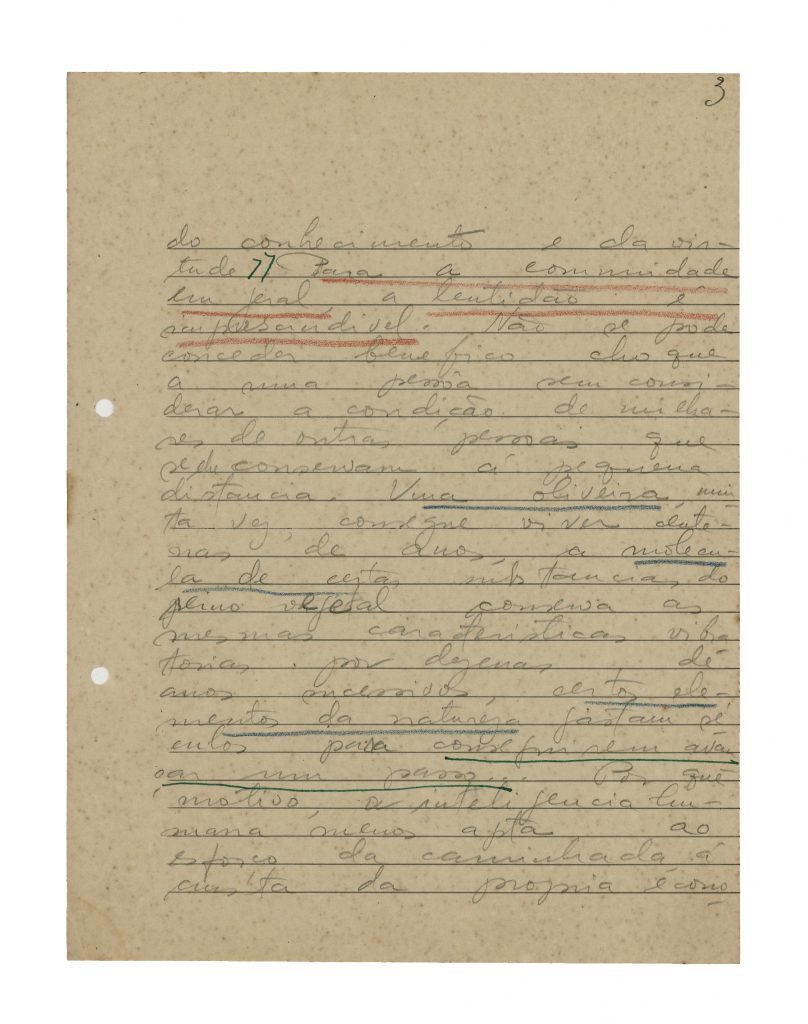 3
do conhecimento e da vir-
tude 77 Para a communidade
em geral, a lentidão é
imprescindivel. Não se pode
conceder benefico choque
a uma pessôa sem consi-
derar a condição de milha-
res de outras pessoas que
se lhe conservam á pequena
distancia. Uma oliveira, mui
ta vez, consegue viver cente-
nas de anos, a molecu-
la de certas substancias do
reino vegetal conserva as
mesmas caracteristicas vibra
torias por dezenas de
anos sucessivos, certos ele-
mentos da natureza gastam sé
culos para conseguirem avan
çar um passo... Por que
motivo, a inteligencia hu-
mana, menos apta ao
esforço da caminhada á
custa da propria écono